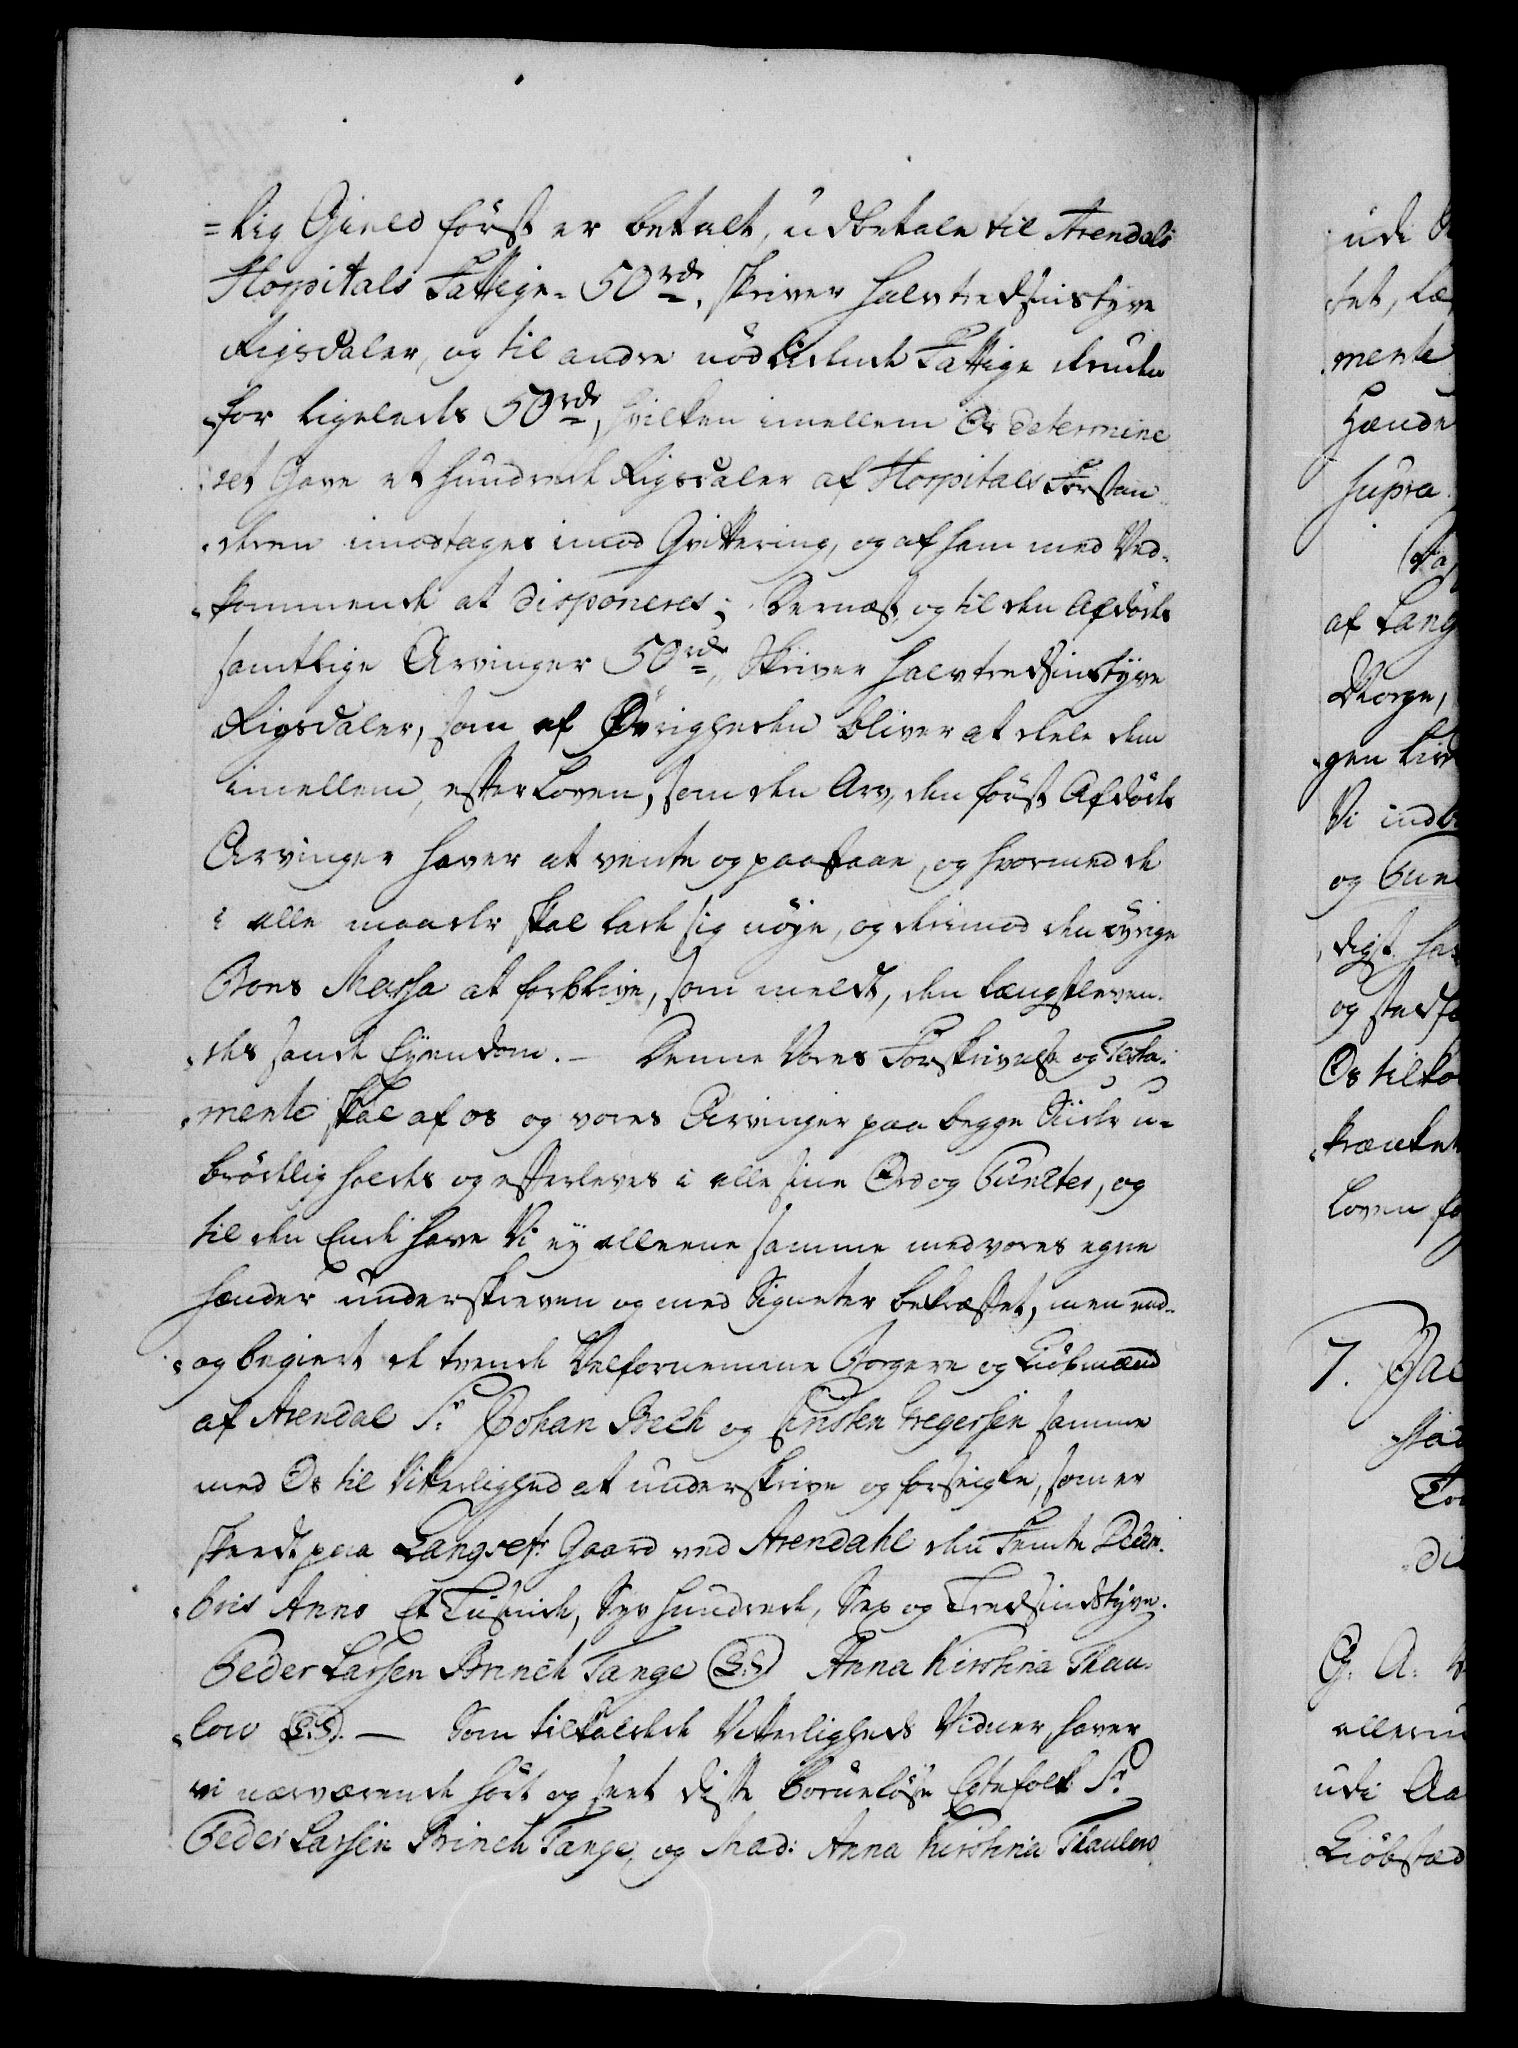 =lig Gield först er betalt, udbetale til Arendals
Hospitals Fattige 50 rdr, skriver halvtredsinstyve
Rigsdaler, og til andre nödlidende Fattige
for ligeleds 50 rdr, hvilken imellem Os determine
ret Gave et hundrede Rigsdaler af Hospitals Forstan
deren imodtages imod Qvittering, og af ham med Ved-
kommende at disponeres; Dernæst, og til den Afdödes
samtlige Arvinger 50 rdr, Skriver halvtredsinstyve
Rigsdaler, som af Øvrigheden bliver at dele dem
imellem, efter Loven, som den Arv, den först Afdödes
Arvinger haver at vente og paastaae, og hvormed de
i alle maader skal lade sig nöye, og derimod den övrige
Boens Massa at forblive, som meldt, den længstleven-
des sande Eyendom. – Denne Vores Forskrivelse og Testa-
mente skal af os og vores Arvinger paa begge Siider u-
brödelig holdes og efterleves i alle sine Ord og Puncter, og
til den Ende have Vi ey alleene samme med vores egne
hænder underskreven og med Signeter bekræftet, men end-
og begiert de tvende Velfornemme Borgere og Kiöbmænd
af Arendal Sr. Johan Bech og Cristen Gregersen samme
med Os til Vitterlighed at underskrive og forseigle, som er
skeedt paa Langset Gaard ved Arendahl den Femte Decem-
bris Anno Et Tusinde, Syv hundrede, Sex og Tredsindstyve.
Peder Larsen Brinch Tange (L.S.) Anna Kirstina Thau-
low (L.S.). – Som tilkaldede Vitterligheds Vidner, haver
vi nærværende hört og seet disse barnlöse Egtefolk Sr.
Peder Larsen Brinch Tange, og Mad: Anna Kirstina Thaulow
ude
tet, 
mente
Hænde
supra
af Lang
Norge,
Vi
og
digst
og
Os
Loven
7.
ellerne
udi Aa
Kiöbstæd